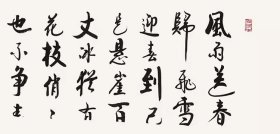 風雨送春
歸飛雪
迎春到已
是懸崖百
丈冰猶有
花枝俏〻
也不争